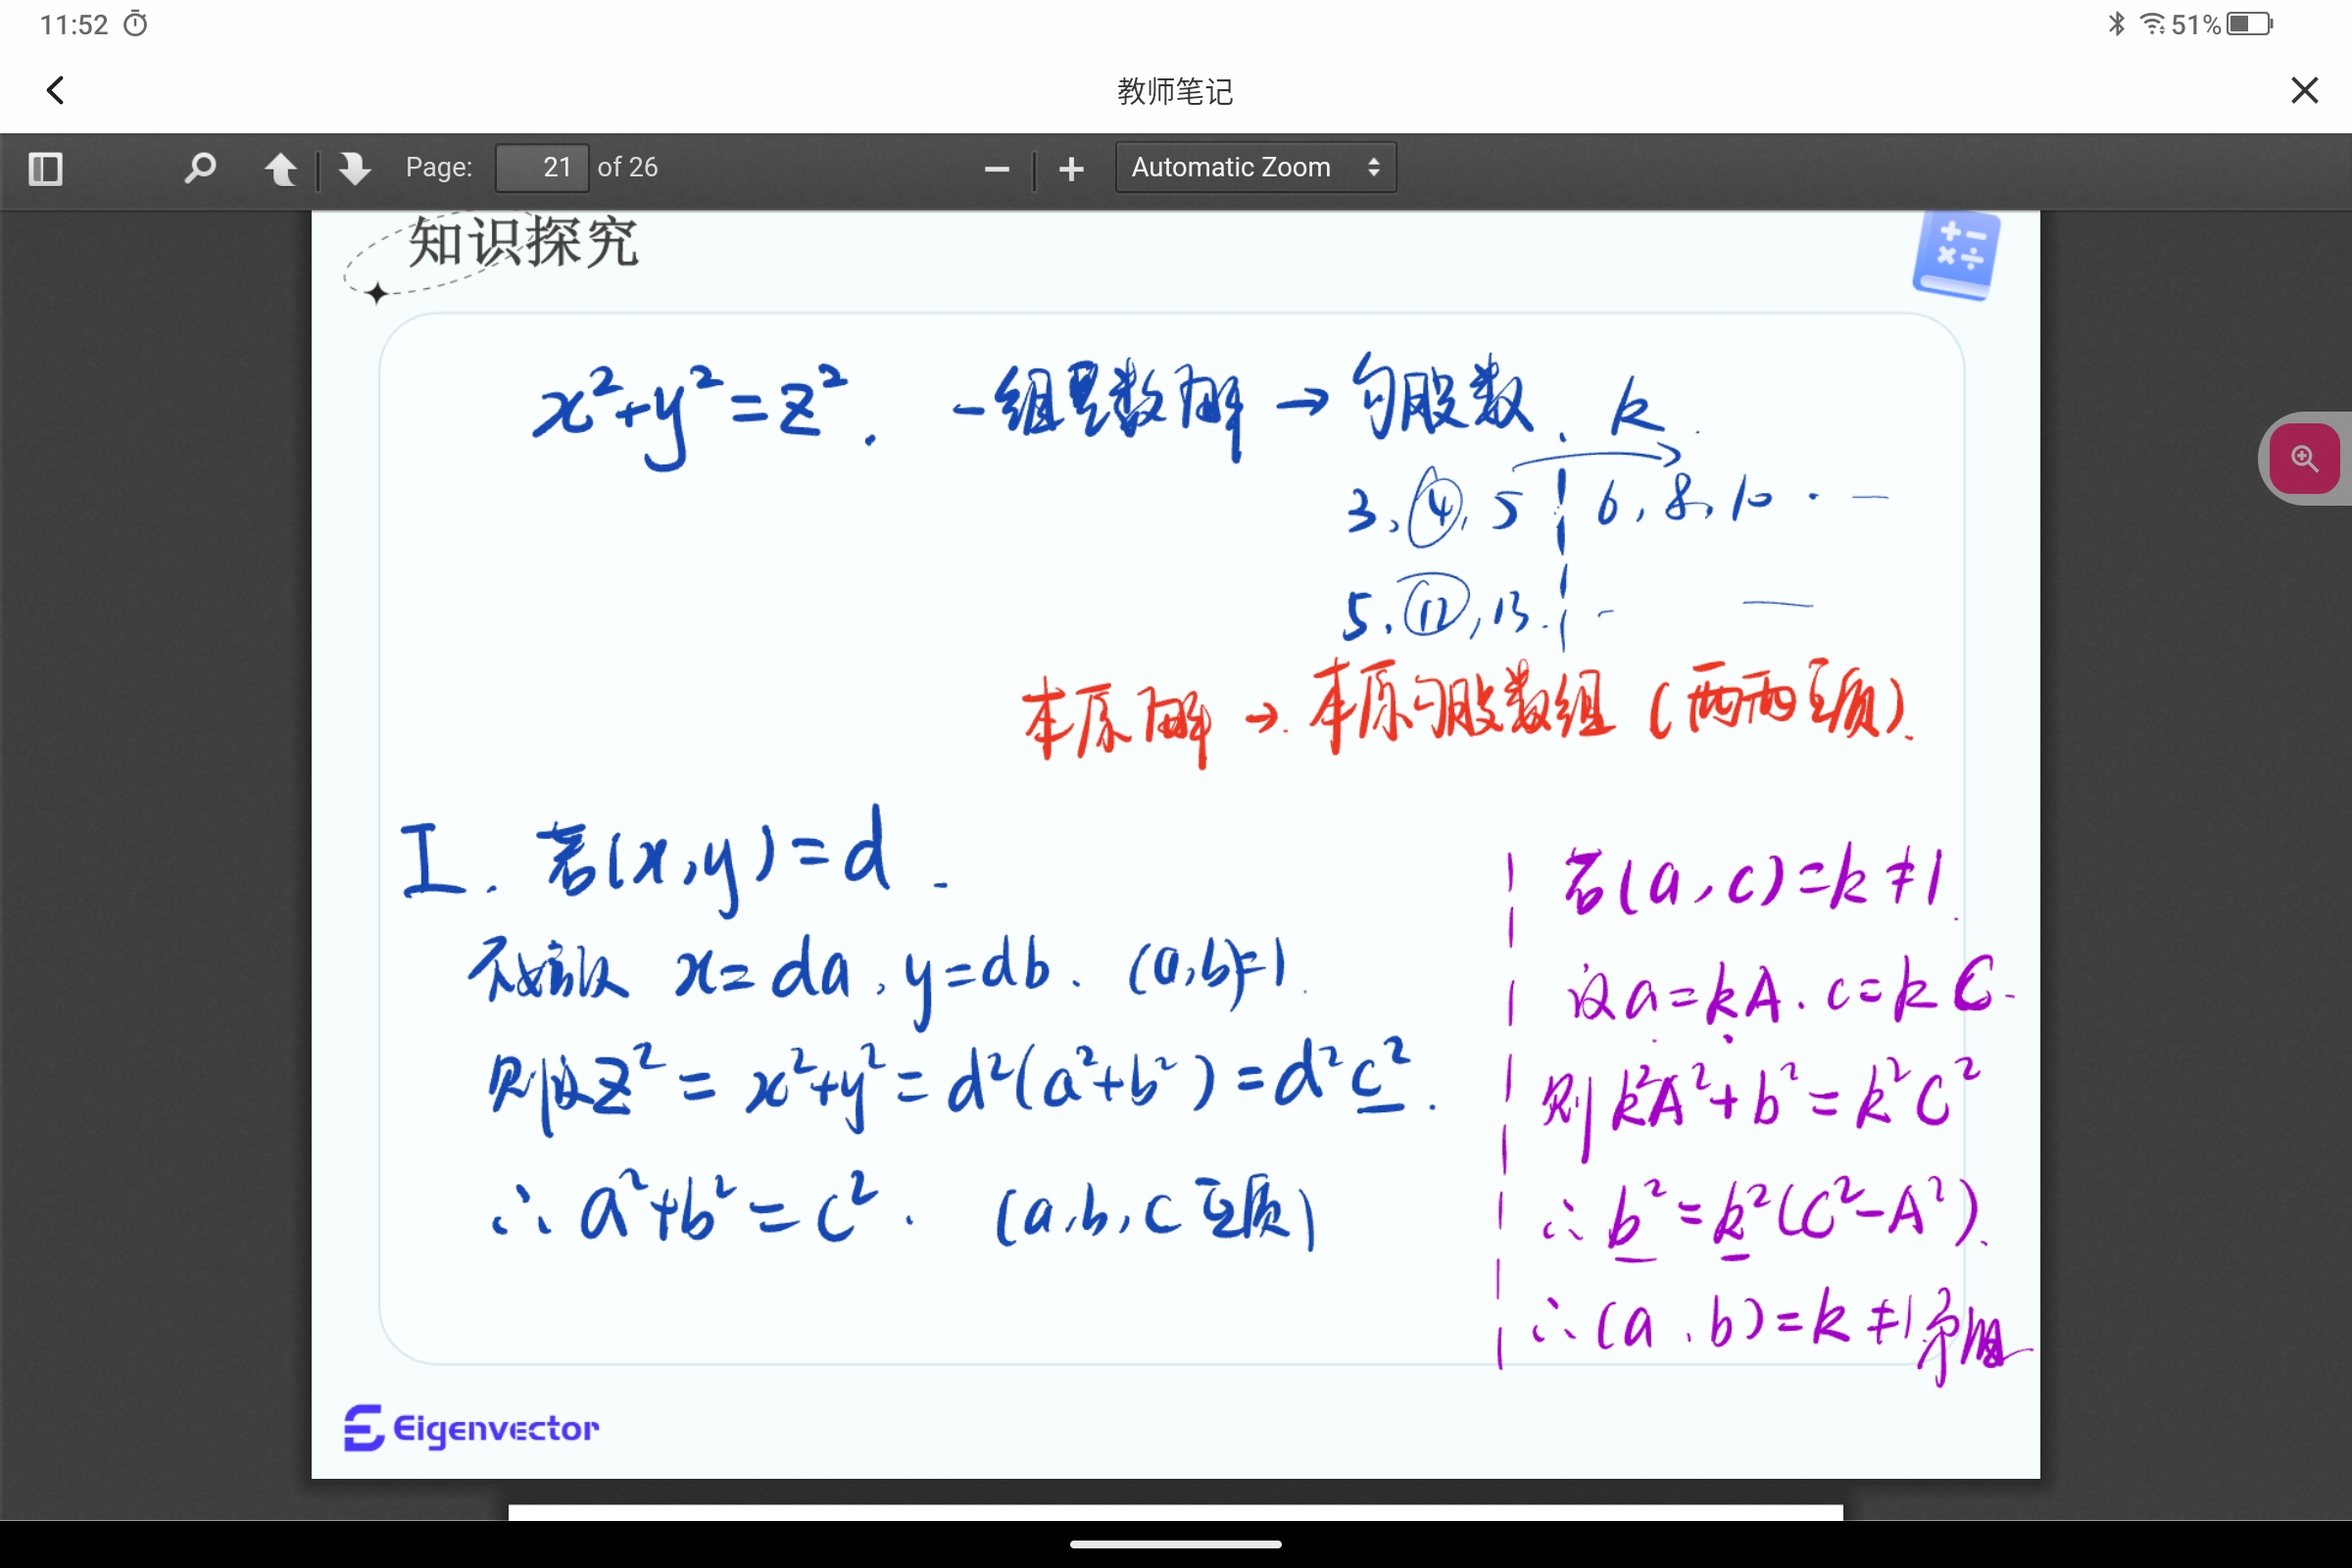 11:52 51%
教师笔记
Page: 21 of 26 Automatic Zoom
知识探究
x²+y²=z². 一组整数解 → 勾股数. k.
3, ④, 5 6, 8, 10 · —
5. ⑫, 13. - —
本原解 →. 本原勾股数组 (两两互质).
I. 若(x,y)=d.
不妨设 x=da, y=db. (a,b)=1.
则设z²=x²+y²=d²(a²+b²)=d²c².
∴ a²+b²=c². (a,b,c互质)
若(a,c)=k≠1.
设a=kA. c=kC.
则k²A²+b²=k²C²
∴ b²=k²(C²-A²).
∴ (a,b)=k≠1矛盾
Eigenvector